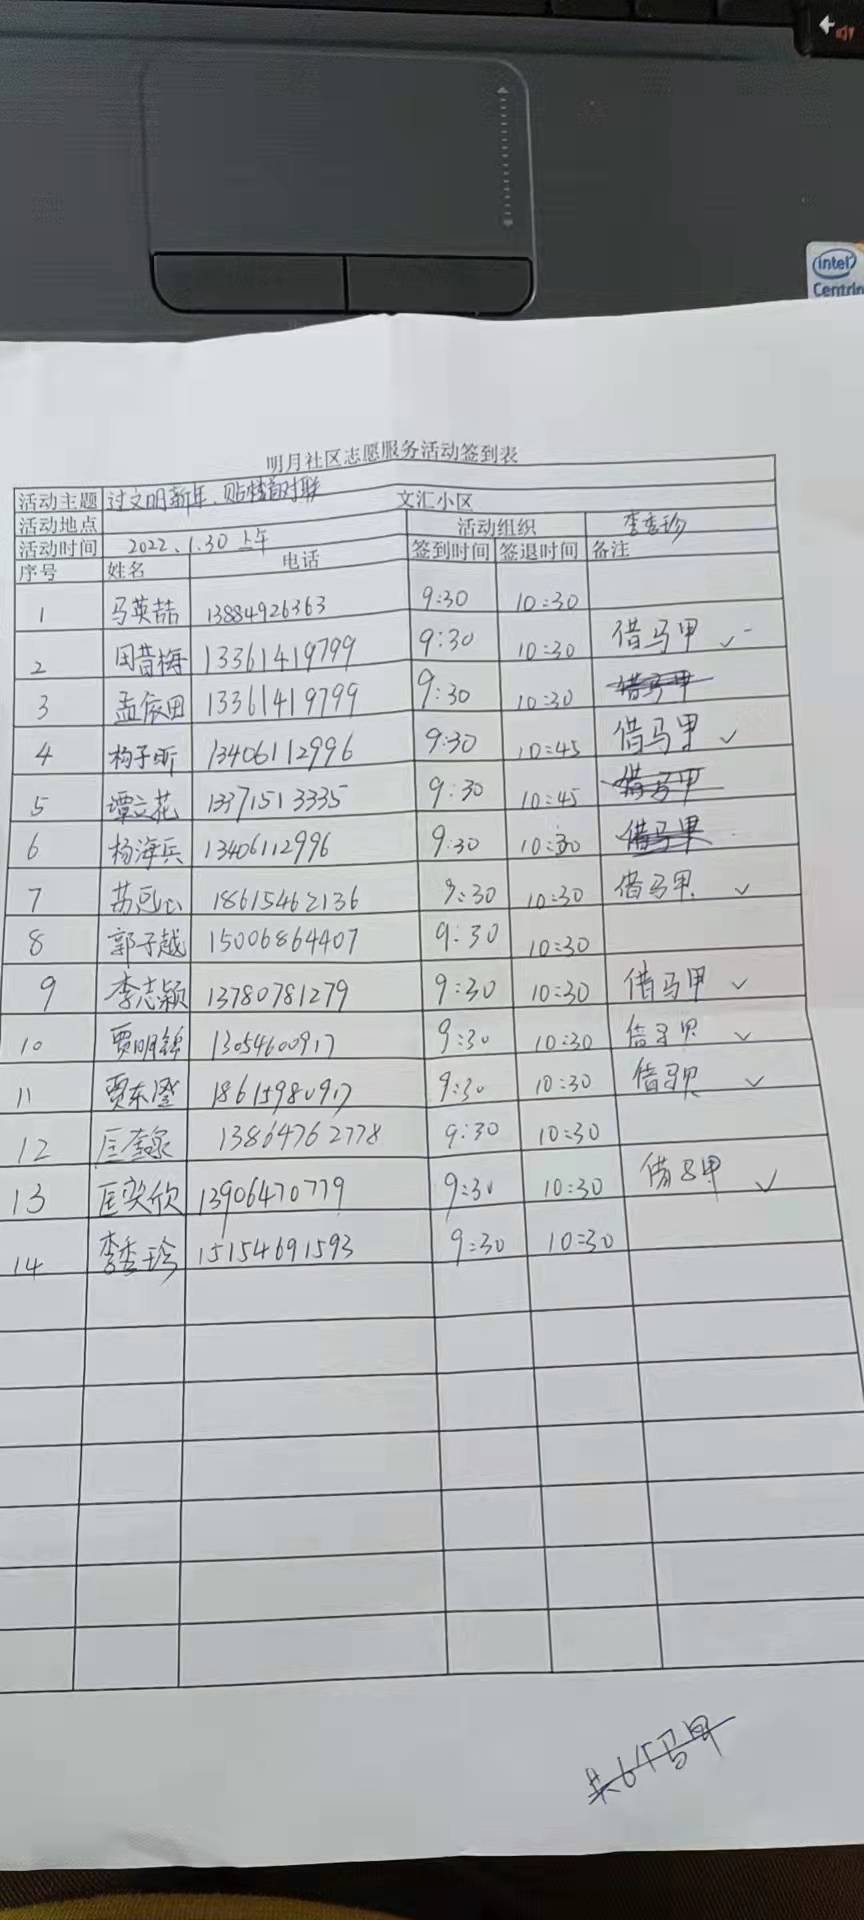 intel
Centrin
明月社区志愿服务活动签到表
活动主题 过文明新年、贴春对联
活动地点 文汇小区
活动时间 2022、1.30 上午 活动组织 李秀珍
序号 姓名 电话 签到时间 签退时间 备注
1 马英喆 13884926363 9:30 10:30
2 田昔梅 13361419799 9:30 10:30 借马甲 ✓
3 孟依田 13361419799 9:30 10:30 借马甲
4 杨子昕 13406112996 9:30 10:45 借马甲 ✓
5 谭立花 13371513335 9:30 10:45 借马甲
6 杨海兵 13406112996 9:30 10:30 借马甲
7 18615462136 9:30 10:30 借马甲 ✓
8 郭子越 15006864407 9:30 10:30
9 李志颖 13780781279 9:30 10:30 借马甲 ✓
10 贾明锦 13054600917 9:30 10:30 ✓
11 贾东 18615980917 9:30 10:30 ✓
12 匡 13864762778 9:30 10:30
13 匡奕欣 13906470779 9:30 10:30 借马甲 ✓
14 李秀珍 15154691593 9:30 10:30
共6件马甲